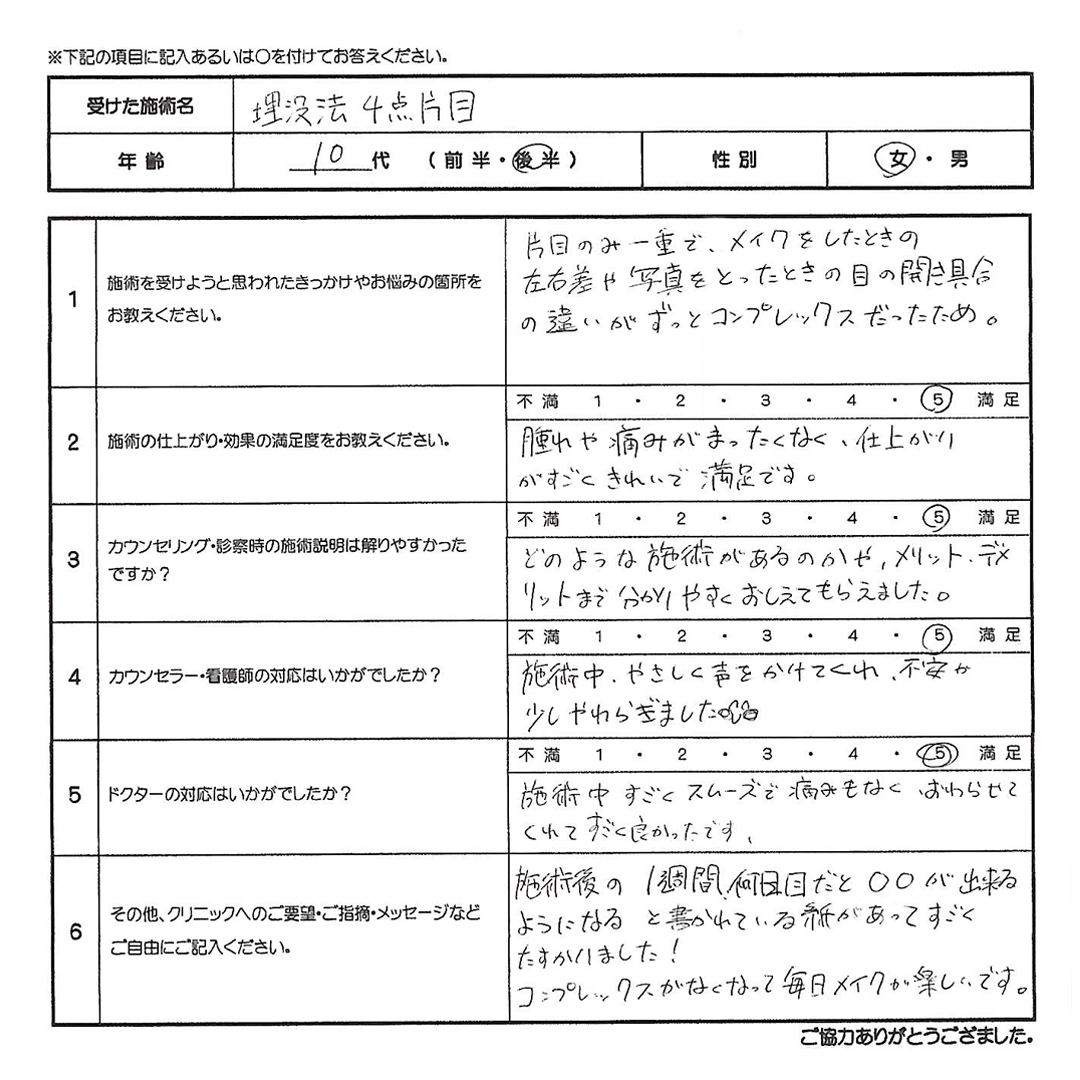 ※下記の項目に記入あるいは〇を付けてお答えください。
受けた施術名 埋没法 4点片目
年齢 10代 (前半・後半) 性別 女・男
1 施術を受けようと思われたきっかけやお悩みの箇所を
お教えください。
片目のみ一重で、メイクをしたときの
左右差や写真をとったときの目の開き具合
の違いがずっとコンプレックスだったため。
2 施術の仕上がり・効果の満足度をお教えください。
不満 1・2・3・4・5 満足
腫れや痛みがまったくなく、仕上がり
がすごくきれいで満足です。
3 カウンセリング・診察時の施術説明は解りやすかった
ですか?
不満 1・2・3・4・5 満足
どのような施術があるのかや、メリット、デメ
リットまで分かりやすくおしえてもらえました。
4 カウンセラー・看護師の対応はいかがでしたか?
不満 1・2・3・4・5 満足
施術中、やさしく声をかけてくれ、不安が
少しやわらぎました
5 ドクターの対応はいかがでしたか?
不満 1・2・3・4・5 満足
施術中すごくスムーズで痛みもなく、おわらせて
くれてすごく良かったです、
6 その他、クリニックへのご要望・ご指摘・メッセージなど
ご自由にご記入ください。
施術後の1週間、何日目だと〇〇が出来る
ようになると書かれている紙があってすごく
たすかりました!
コンプレックスがなくなって毎日メイクが楽しいです。
ご協力ありがとうござました。